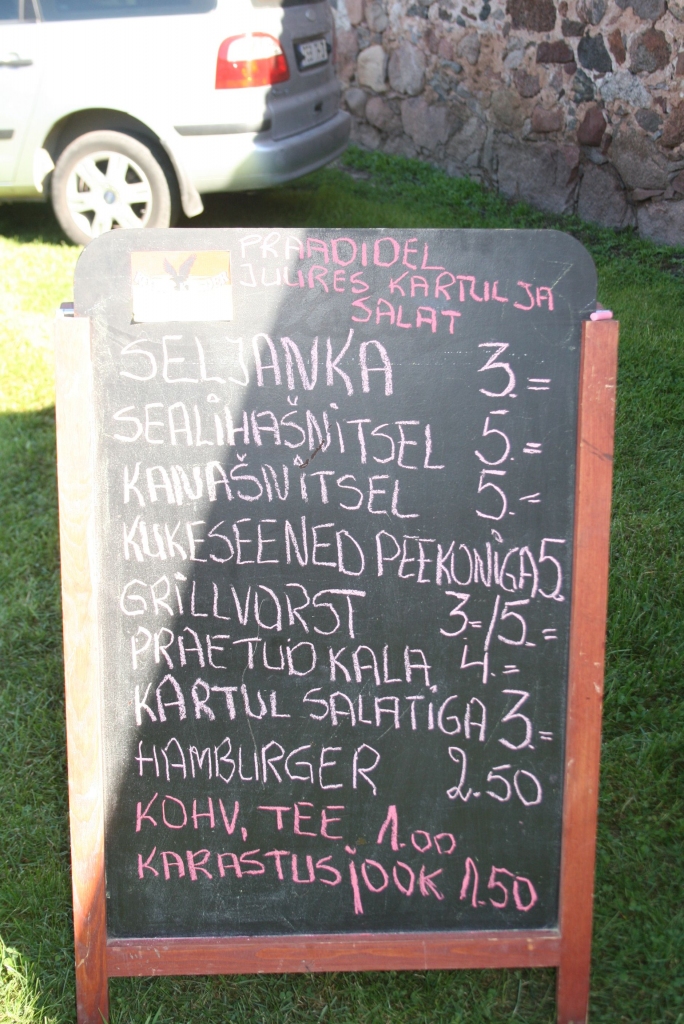 PRAADIDEL
JUURES KARTUL JA
SALAT
SELJANKA 3.=
SEALIHAŠNITSEL 5.=
KANAŠNITSEL 5.=
KUKESEENED PEEKONIGA 5.
GRILLVORST 3.=/5.=
PRAETUD KALA 4.=
KARTUL SALATIGA 3.=
HAMBURGER 2.50
KOHV, TEE 1.00
KARASTUSJOOK 1.50